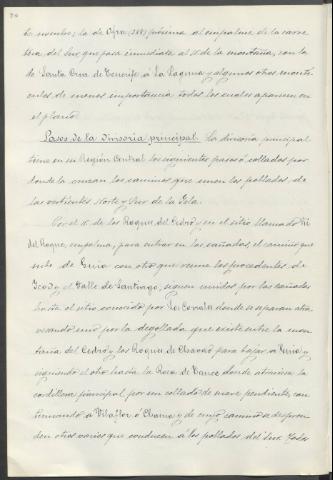 su nombre; la de Ofra (288) próxima al empalme de la carre-
tera del Sur que pasa inmediata al S. de la montaña, con la
de Santa Cruz de Tenerife á La Laguna y algunas otras mont-
añas de menos importancia todas las cuales aparecen en
el plano.
Pasos de la divisoria principal. La divisoria principal
tiene en su Región Central los siguientes pasos ó collados por
donde la cruzan los caminos que unen los poblados de
las vertientes Norte y Sur de la Isla.
Por el S. de los Roques del Cedro y en el sitio llamado
del Roque, empalma, para entrar en las cañadas, el camino que
sube de Guía con otro que reune los procedentes de
Icod y el Valle de Santiago, siguen unidos por las cañadas
hasta el sitio conocido por donde se separan atra-
vesando uno por la degollada que existe entre la mon-
taña del Cedro y los Roques de Chavao para bajar á Guía y
siguiendo el otro hacia la Boca de Tauce donde atraviesa la
cordillera principal por un collado de suave pendiente, con-
tinuando á Vilaflor ó Chasna y de cuyo camino se despren-
den otros varios que conducen á los poblados del Sur. Todos